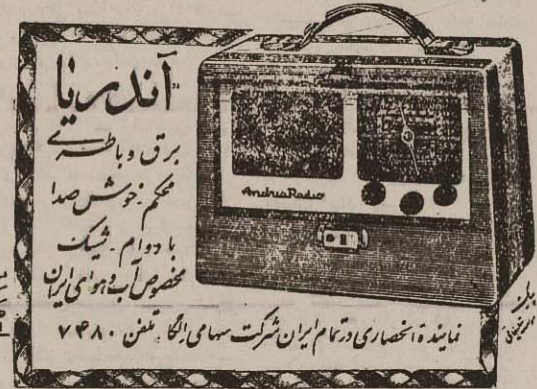 آندریا
برق و باطری
محکم. خوش صدا
با دوام. شیک
مخصوص آب و هوای ایران
Andrea Radio
نماینده انحصاری در تمام ایران شرکت سهامی الگا. تلفن ۷۴۸۰